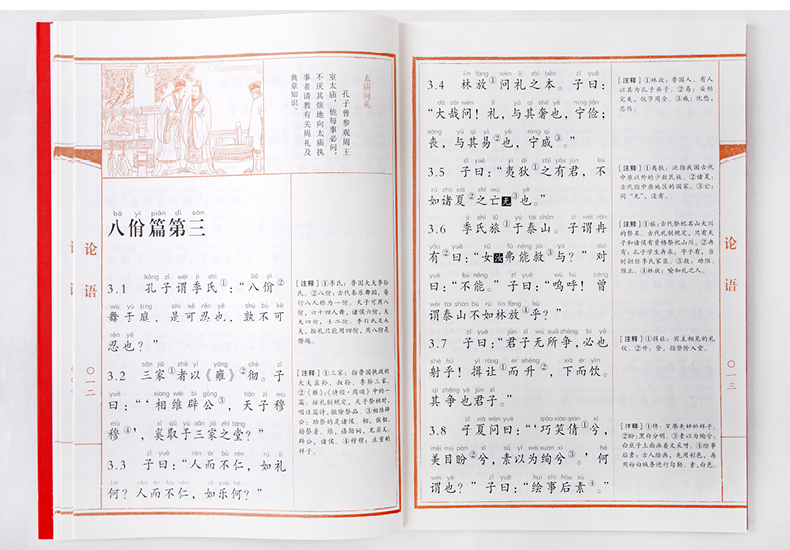 太庙问礼
孔子曾参观周王
室太庙，他每事必问，
不厌其烦地向太庙执
事者请教有关周礼及
典章知识。
bā yì piān dì sān
八佾篇第三
kǒng zǐ wèi jì shì bā yì
3.1 孔子谓季氏①：“八佾②
wǔ yú tíng shì kě rěn yě shú bù kě
舞于庭，是可忍也，孰不可
rěn yě
忍也？”
sān jiā zhě yǐ yōng chè zǐ
3.2 三家①者以《雍》②彻。子
yuē xiàng wéi bì gōng tiān zǐ mù
曰：“‘相维辟公③，天子穆
mù xī qǔ yú sān jiā zhī táng
穆④’，奚取于三家之堂？”
zǐ yuē rén ér bù rén rú lǐ
3.3 子曰：“人而不仁，如礼
hé rén ér bù rén rú yuè hé
何？人而不仁，如乐何？”
[注释] ①季氏：鲁国大夫季孙
氏。②八佾：古代奏乐舞蹈，每
行八人称为一佾。天子可用八
佾，六十四人舞，诸侯六佾，大
夫四佾，士二佾。季氏是大
夫，按礼只能用四佾，用八佾是
僭越。
[注释] ①三家：指鲁国执政的
大夫孟孙、叔孙、季孙三家。
②《雍》：《诗经·周颂》中的一
篇。按礼制规定，天子祭祖时，
唱这篇诗，撤除祭品。③相维辟
公：助祭的是诸侯。相，傧相，
助祭者。维，语助词，无实义。
辟公，诸侯。④穆穆：庄重的
样子。
论语
〇一二
lín fàng wèn lǐ zhī běn zǐ yuē
3.4 林放①问礼之本。子曰：
dà zāi wèn lǐ yǔ qí shē yě nìng jiǎn
“大哉问！礼，与其奢也，宁俭；
sāng yǔ qí yì yě nìng qī
丧，与其易②也，宁戚③。”
zǐ yuē yí dí zhī yǒu jūn bù
3.5 子曰：“夷狄①之有君，不
rú zhū xià zhī wú yě
如诸夏②之亡无③也。”
jì shì lǚ yú tài shān zǐ wèi rǎn
3.6 季氏旅①于泰山。子谓冉
yǒu yuē rǔ fú néng jiù yú duì
有②曰：“女汝弗能救③与？”对
yuē bù néng zǐ yuē wū hū céng
曰：“不能。”子曰：“呜呼！曾
wèi tài shān bù rú lín fàng hū
谓泰山不如林放④乎？”
zǐ yuē jūn zǐ wú suǒ zhēng bì yě
3.7 子曰：“君子无所争，必也
shè hū yī ràng ér shēng xià ér yǐn
射乎！揖让①而升②，下而饮。
qí zhēng yě jūn zǐ
其争也君子。”
zǐ xià wèn yuē qiǎo xiào qiàn xī
3.8 子夏问曰：“‘巧笑倩①兮，
měi mù pàn xī sù yǐ wéi xuàn xī hé
美目盼②兮，素以为绚③兮。’何
wèi yě zǐ yuē huì shì hòu sù
谓也？”子曰：“绘事后素④。”
[注释] ①林放：鲁国人。有人
以其为孔子弟子。②易：妥帖
完美，仪节周全。③戚：忧愁，
悲伤。
[注释] ①夷狄：泛指我国古代
中原以外的少数民族。②诸夏：
古代指中原地区的国家。③亡：
同“无”，没有。
[注释] ①旅：古代祭祀名山大川
的祭名。古代礼制规定，只有天
子和诸侯有资格祭祀山川。②冉
有：孔子学生冉求，字子有，当
时担任季氏家臣。③救：劝阻，
阻止。④林放：喻知礼之人。
[注释] ①揖让：宾主相见的礼
仪。②升：登，指登阶入堂。
[注释] ①倩：笑靥美好的样子。
②盼：黑白分明。③素以为绚兮：
白底子上面画着文采呀。④绘事
后素：古人绘画，先用彩色，再
用粉白线条进行勾勒。素，白色。
论语
〇一三